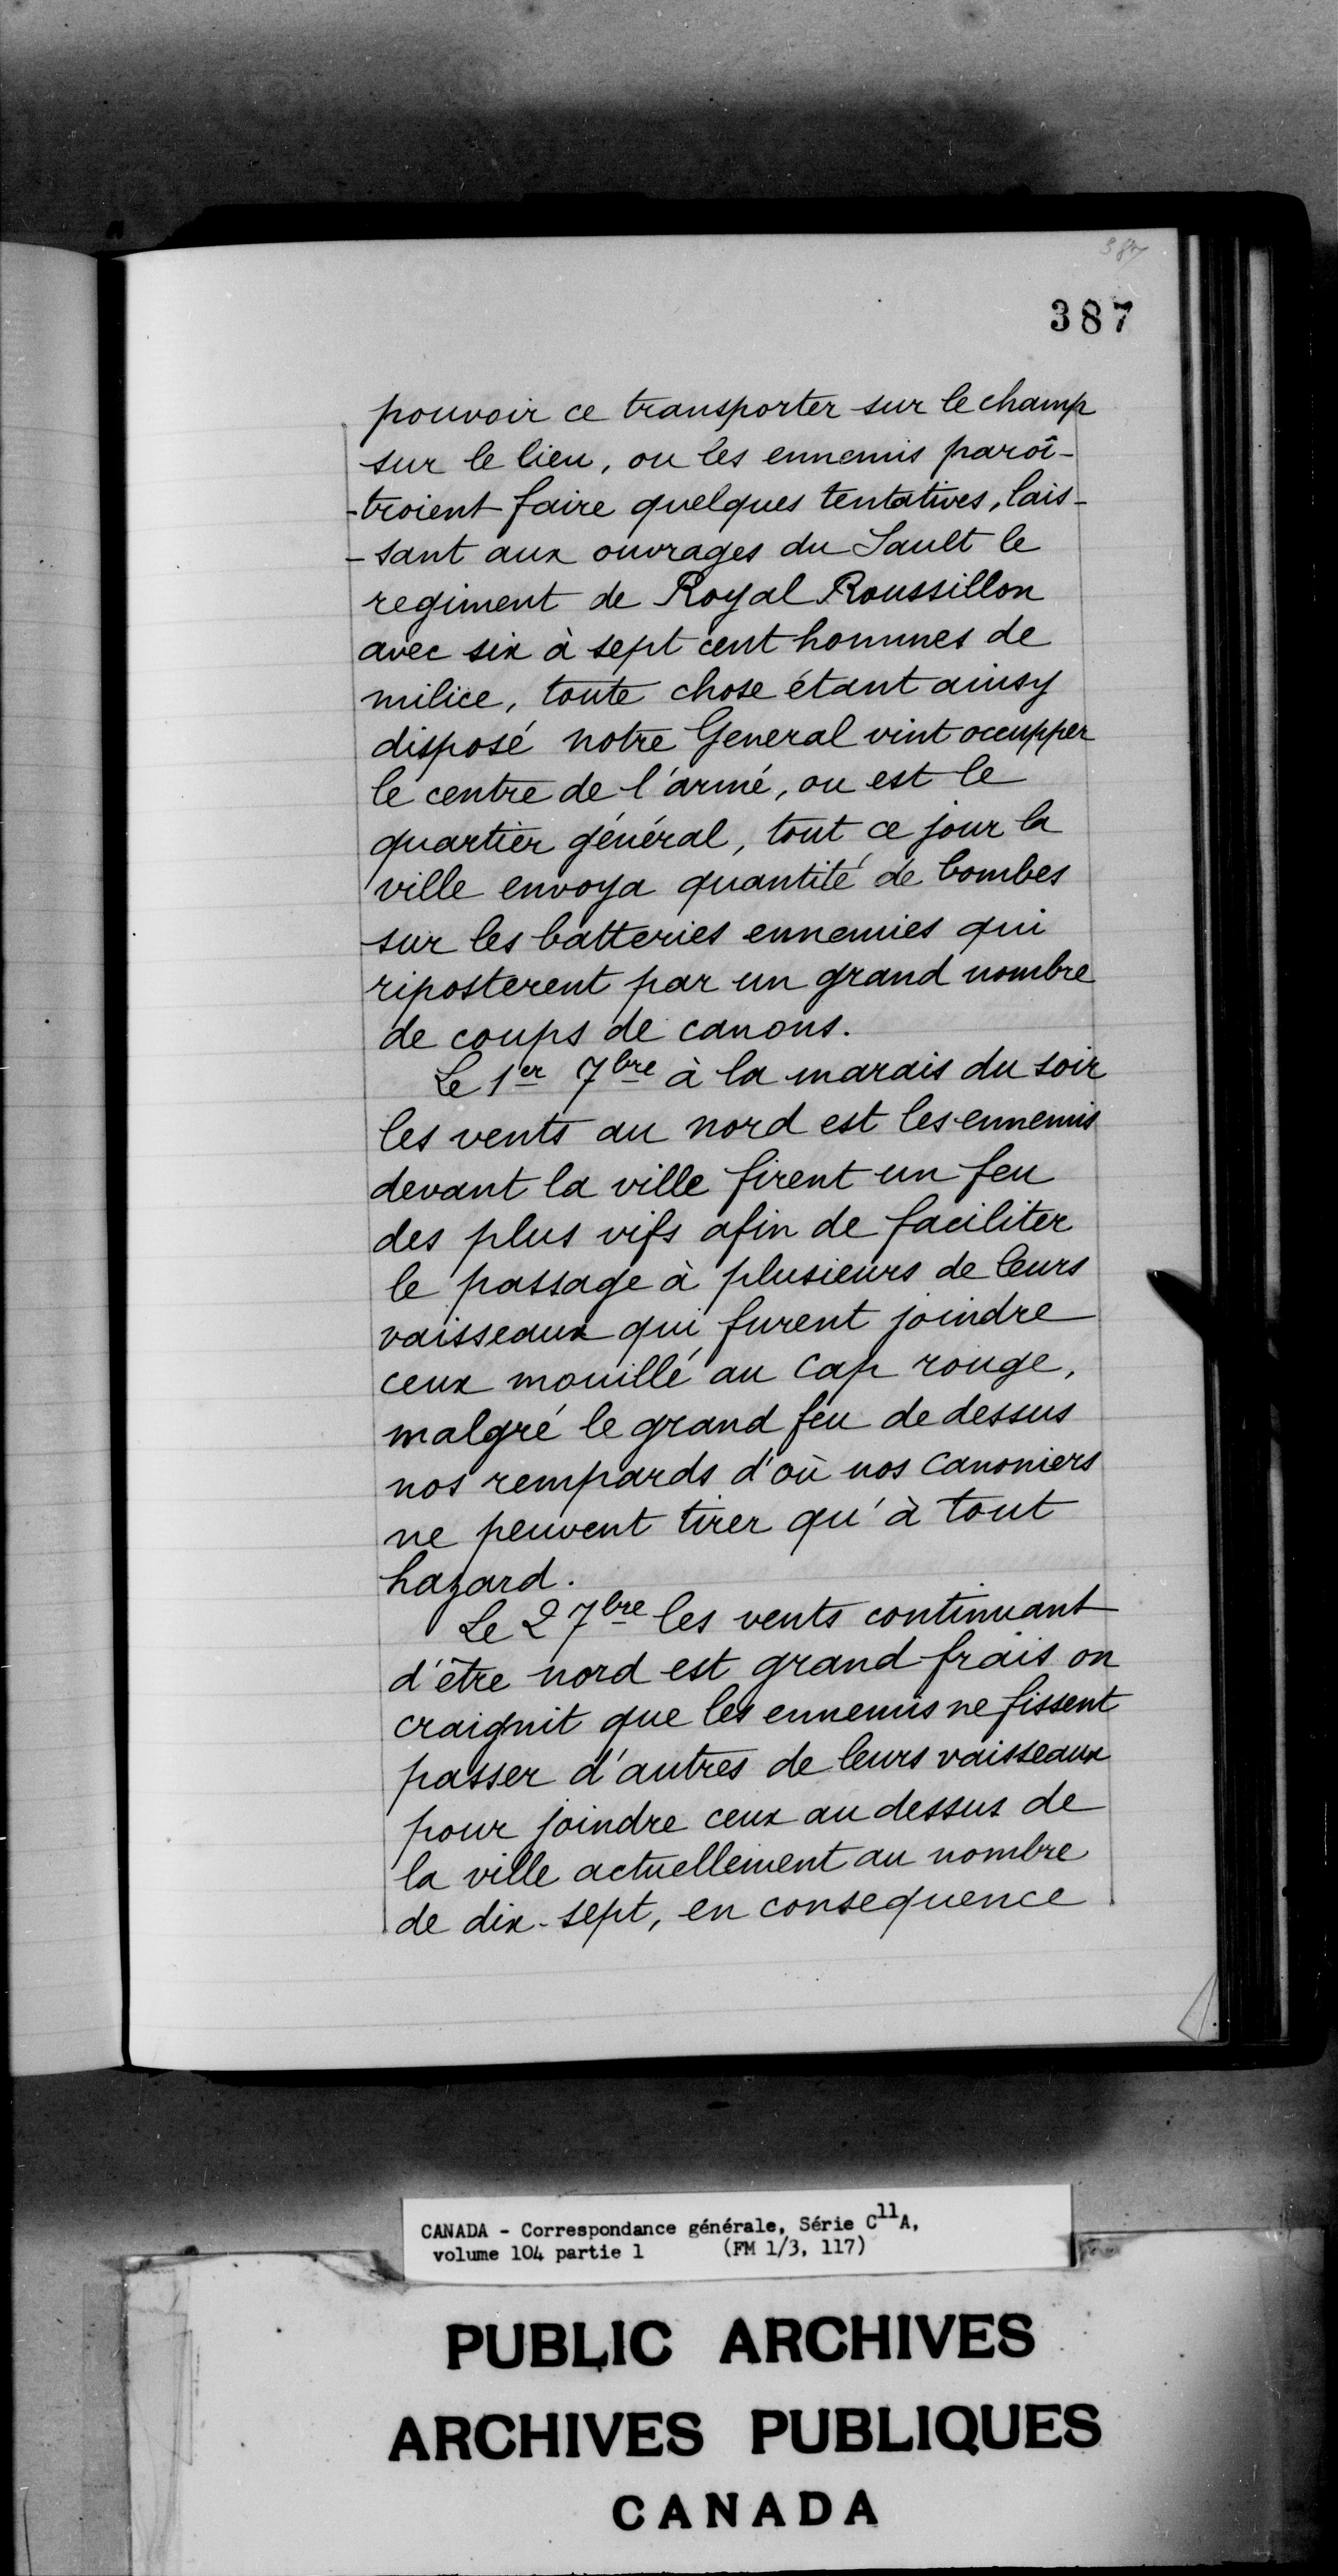 387
387
pouvoir ce transporter sur le champ
sur le lieu, ou les ennemis paroî-
-troient faire quelques tentatives, lais-
-sant aux ouvrages du Sault le
regiment de Royal Roussillon
avec six à sept cent hommes de
milice, toute chose étant ainsy
disposé notre General vint occupper
le centre de l'armé, ou est le
quartier général, tout ce jour la
ville envoya quantité de bombes
sur les batteries ennemies qui
riposterent par un grand nombre
de coups de canons.
Le 1er 7bre à la marais du soir
les vents au nord est les ennemis
devant la ville firent un feu
des plus vifs afin de faciliter
le passage à plusieurs de leurs
vaisseaux qui furent joindre
ceux mouillé au Cap rouge,
malgré le grand feu de dessus
nos rempards d'où nos canoniers
ne peuvent tirer qu'à tout
hazard.
Le 2 7bre les vents continuant
d'être nord est grand frais on
craignit que les ennemis ne fissent
passer d'autres de leurs vaisseaux
pour joindre ceux au dessus de
la ville actuellement au nombre
de dix-sept, en consequence
CANADA - Correspondance générale, Série C11A,
volume 104 partie 1 (FM 1/3, 117)
PUBLIC ARCHIVES
ARCHIVES PUBLIQUES
CANADA